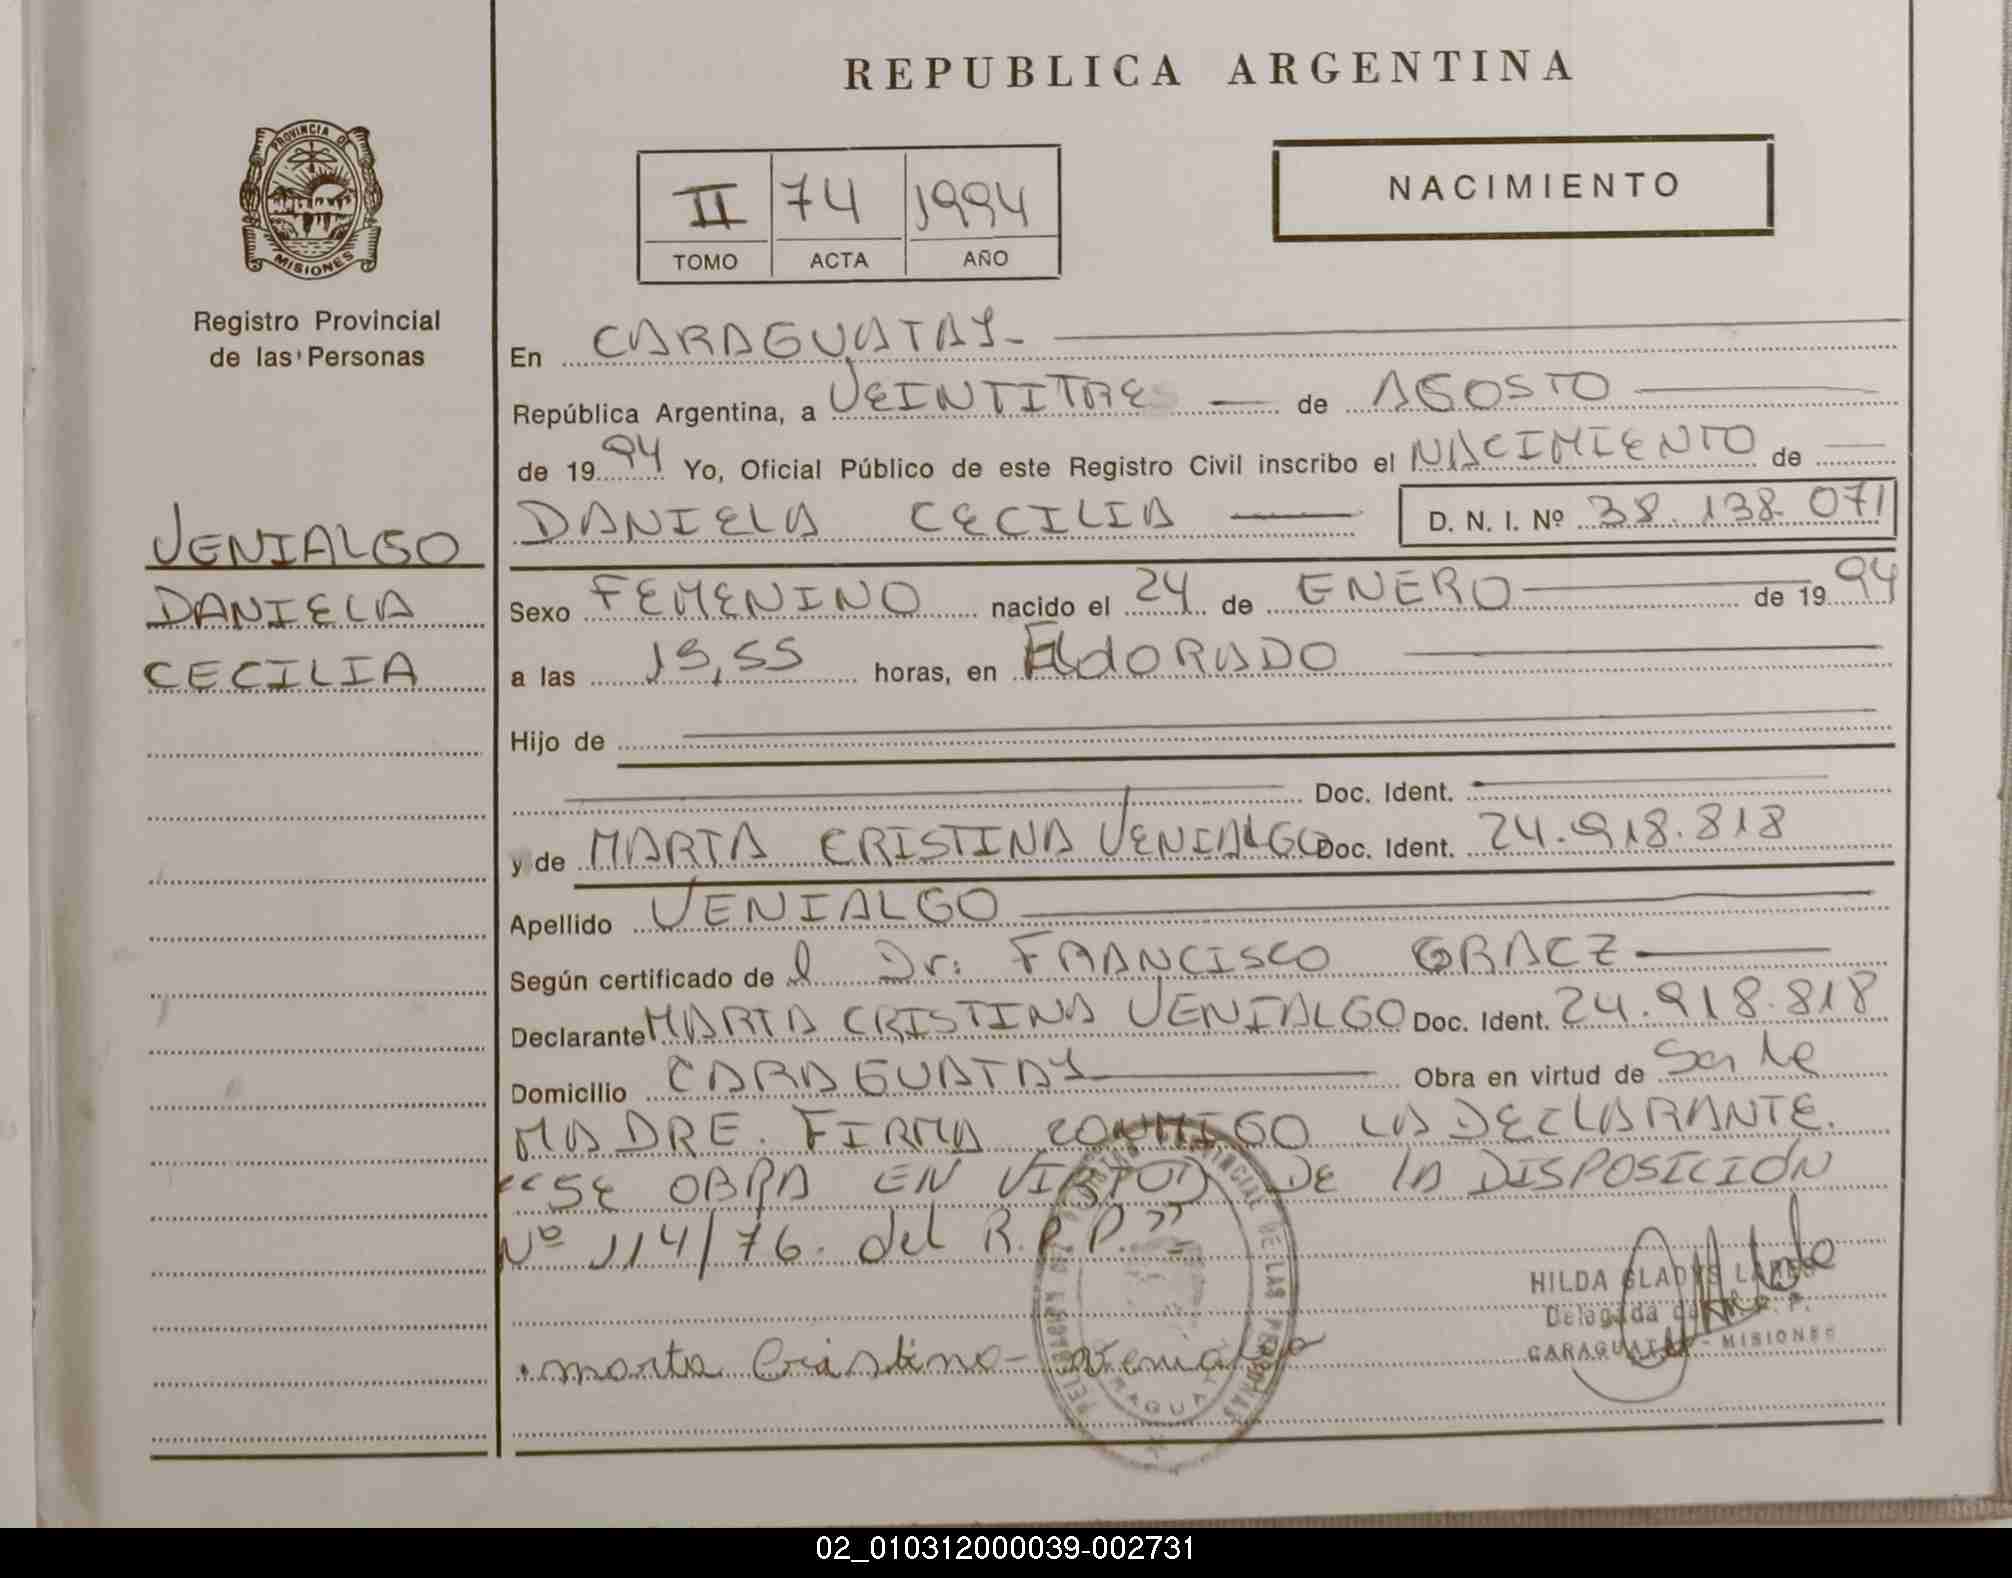 REPUBLICA ARGENTINA
PROVINCIA DE
MISIONES
Registro Provincial
de las Personas
II 74 1994
TOMO ACTA AÑO
NACIMIENTO
VENIALGO
DANIELA
CECILIA
En CARAGUATAY-
República Argentina, a VEINTITRES de AGOSTO
de 1994 Yo, Oficial Público de este Registro Civil inscribo el NACIMIENTO de
DANIELA CECILIA D. N. I. Nº 38.138.071
Sexo FEMENINO nacido el 24 de ENERO de 1994
a las horas, en ElDORADO
Hijo de
Doc. Ident.
y de MARTA CRISTINA VENIALGO Doc. Ident. 24.918.818
Apellido VENIALGO
Según certificado de l Dr: FRANCISCO GRACZ
Declarante MARTA CRISTINA VENIALGO Doc. Ident. 24.918.818
Domicilio CARAGUATAY Obra en virtud de Ser la
MADRE. FIRMA CONMIGO LA DECLARANTE.
"SE OBRA EN VIRTUD DE LA DISPOSICIÓN
Nº 114/76. del R.P.P."
HILDA GLADYS
Delegada del R. P. P.
CARAGUATAY - MISIONES
marta Cristina Venialgo
02_010312000039-002731